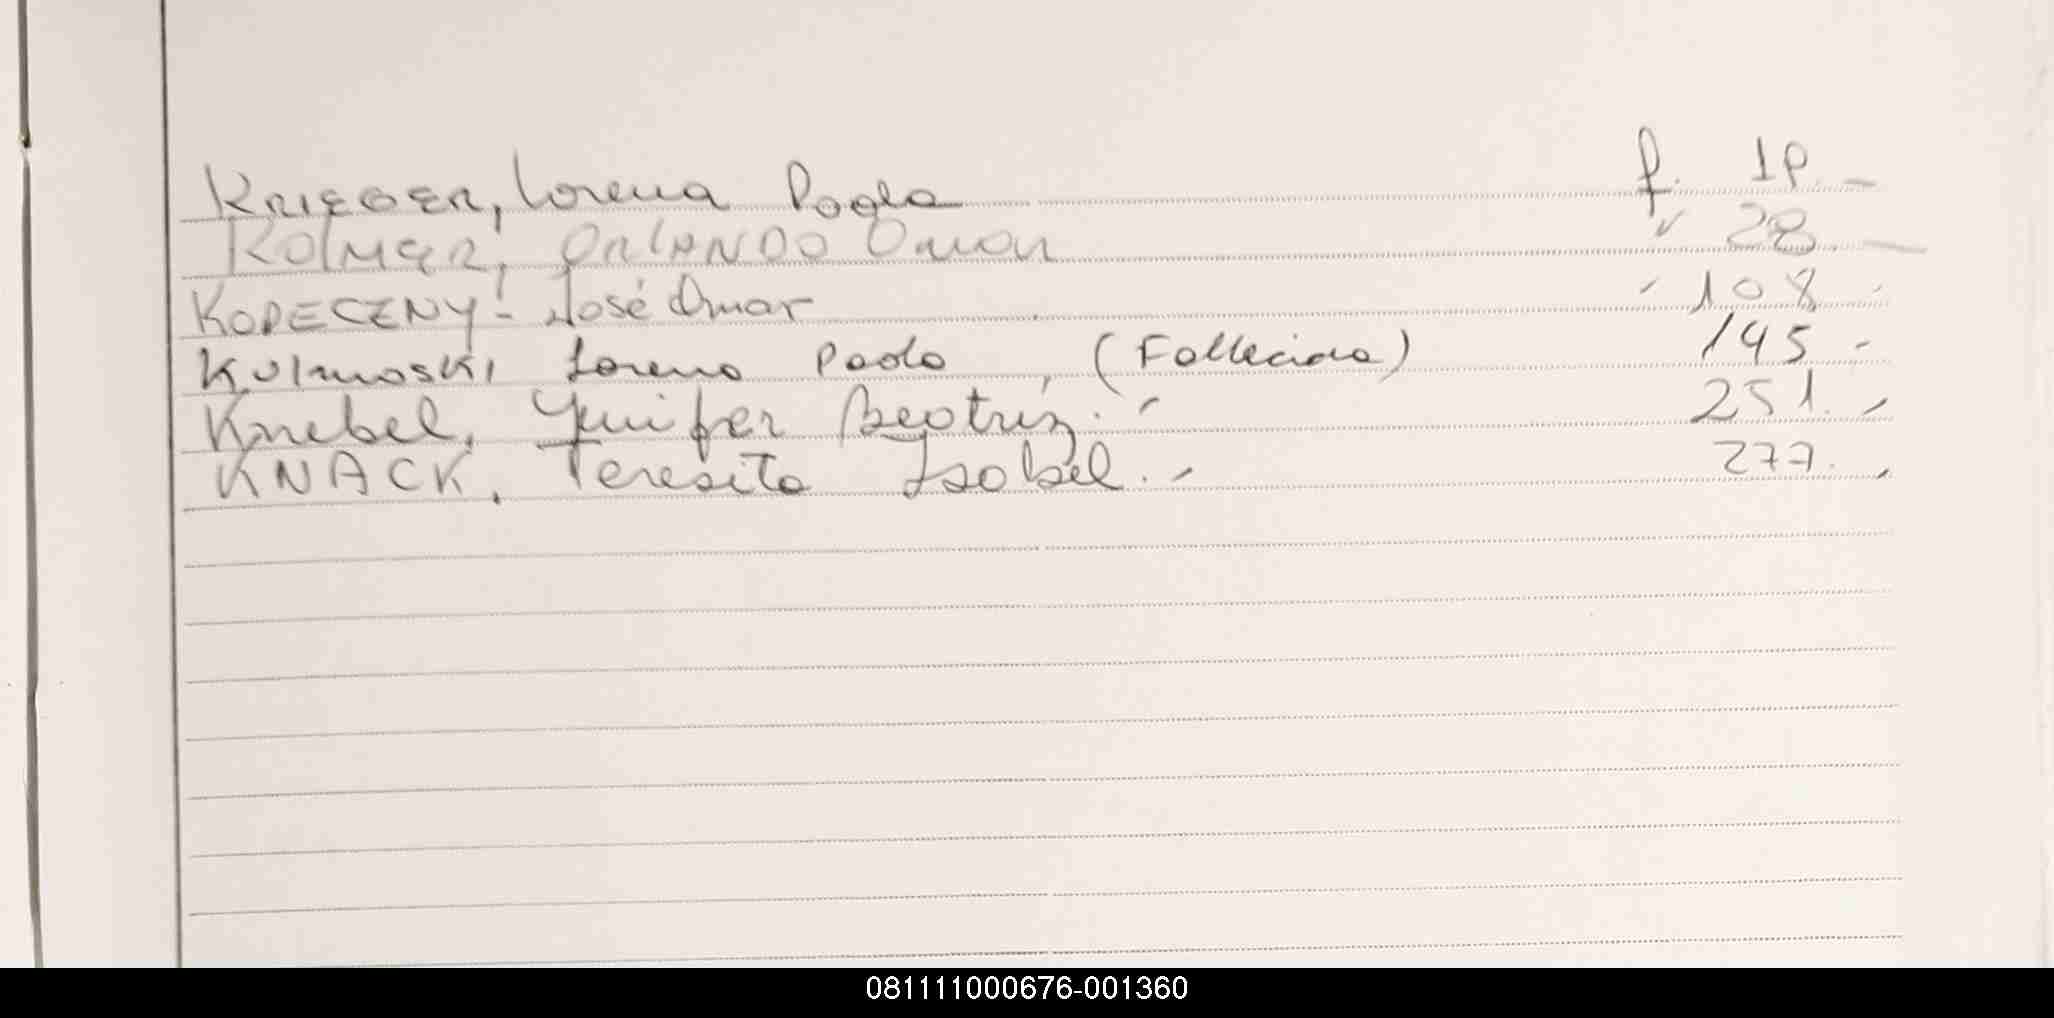 KRIEGER, Lorena Paola f. 18.-
KOLMER, ORLANDO Omar " 28.-
KOPECZNY- José Omar " 108.
Kulmoski, Lorena Paola, (Fallecida) 145 -
Knebel, Yenifer Beatriz.- 251.-
KNACK, Teresita Isabel.- 277.-
081111000676-001360